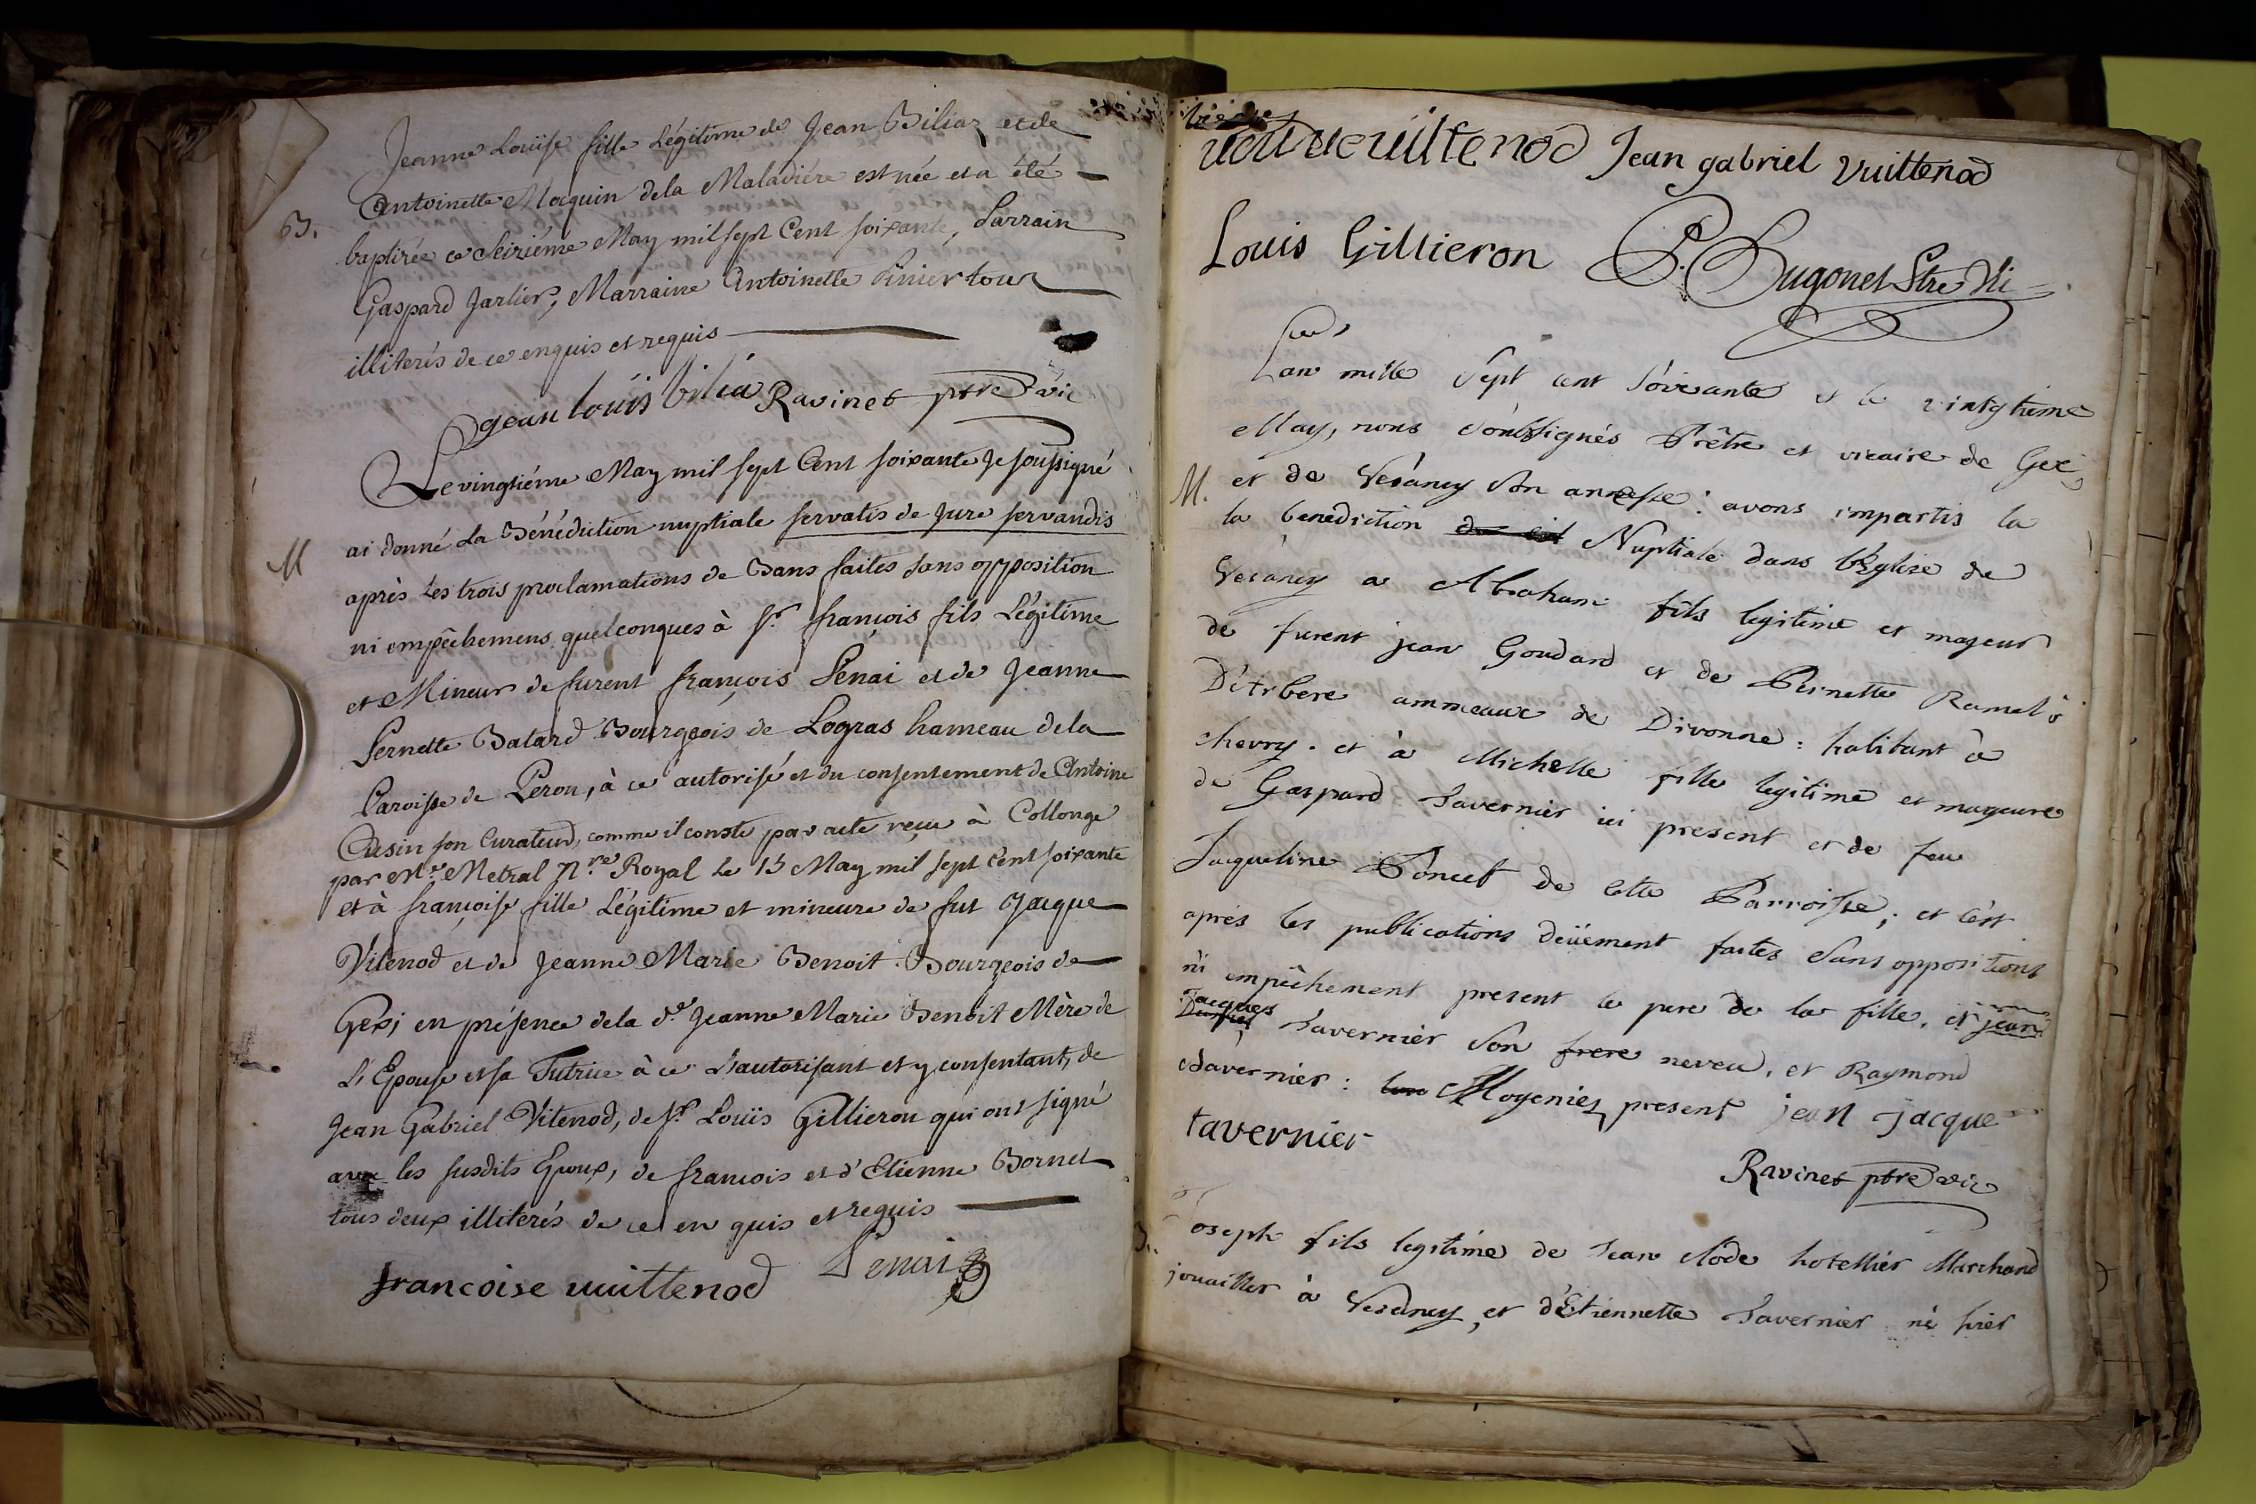 Jeanne Louïse fille Légitime de Jean Biliaz et de
Antoinette Mocquin dela Maladiére est née et a été
B.
baptizée ce Seiziéme May mil sept Cent soixante, Parrain
Gaspard Jarlier, Marraine Antoinette Pinier tous
illiterés de ce enquis et requis
jean louis bilia Ravinet ptre vic
Le vingtiéme May mil sept Cent soixante Je soussigné
M
ai donné La Bénédiction nuptiale servatis de Jure servandis
après Les trois proclamations de Bans faites sans opposition
ni empêchemens quelconques à Sr. françois fils Légitime
et Mineur de furent françois Pénai et de Jeanne
Pernette Batard Bourgeois de Logras hameau dela
Paroisse de Péron, à ce autorisé et du consentement de Antoine
Cusin son Curateur, comme il conste par acte reçu à Collonge
par Me. Metral Nre. Royal Le 15 May mil sept Cent soixante
et à françoise fille Légitime et mineure de fut Jacque
Vitenod et de Jeanne Marie Benoit Bourgeois de
Gex; en présence dela de. Jeanne Marie Benoit Mère de
L'Epouse et sa Tutrice à ce L'autorisant et y consentant, de
Jean Gabriel Vitenod, de Sr. Louïs Gillieron qui ont signé
avec les susdits Epoux, de françois et d'Etienne Bornet
tous deux illiterés de ce en quis et requis
francoise uuittenod Penai
veuve uittenod Jean gabriel vuittenod
Louis Gillieron P. Dugonet Ptre Vi
Lan mille Sept cent Soixante et le vintgtieme
May, nous Soussignés Prêtre et vicaire de Gex
M. et de Vesancy Son annesse: avons impartis la
la benediction Nuptiale dans l'Eglise de
Vesancy a Abraham fils legitime et mageur
de furent jean Goudard et de Pernette Ramel
D'étrbere ammeaux de Divonne: habitant à
chevry. et à Michelle fille legitime et mageure
de Gaspard Tavernier ici present et de feu
Jacqueline Poncet de cette Parroisse; et c'est
aprés les publications deüement faites Sans oppositions
ni empêchement present le pere de la fille. et jean
Jacques Tavernier Son frere neveu, et Raymond
Tavernier: Mogeniez present jean Jacque
tavernier
Ravinet ptre vic
Joseph fils legitime de Jean Clode hotellier Marchand
jouaillier à Vesancy, et d'Etiennette Tavernier né hier